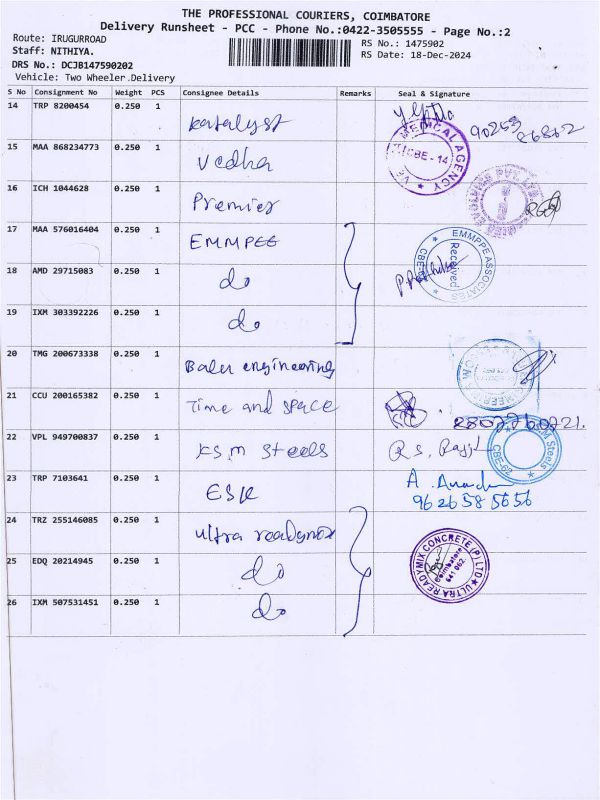 THE PROFESSIONAL COURIERS, COIMBATORE
Delivery Runsheet - PCC - Phone No.:0422-3505555 - Page No.:2
Route: IRUGURROAD
RS No.: 1475902
Staff: NITHIYA.
RS Date: 18-Dec-2024
DRS No.: DCJB147590202
Vehicle: Two Wheeler Delivery
S No Consignment No Weight PCS Consignee Details Remarks Seal & Signature
14 TRP 8200454 0.250 1 Katalyst
15 MAA 868234773 0.250 1 Vedha
MEDICAL AGENCY
CBE - 14
16 ICH 1044628 0.250 1 Premier
17 MAA 576016404 0.250 1 EMMPEE
EMMPPE ASSOCIATES
Received
18 AMD 29715083 0.250 1 do
19 IXM 303392226 0.250 1 do
20 TMG 200673338 0.250 1 Balu engineering
21 CCU 200165382 0.250 1 Time and space
22 VPL 949700837 0.250 1 KSM Steels
Steels
CBE-62
23 TRP 7103641 0.250 1 ESK
9626585656
24 TRZ 255146085 0.250 1 Ultra readymix
ULTRA READYMIX CONCRETE (P) LTD
Coimbatore
641 062.
25 EDQ 20214945 0.250 1 do
26 IXM 507531451 0.250 1 do